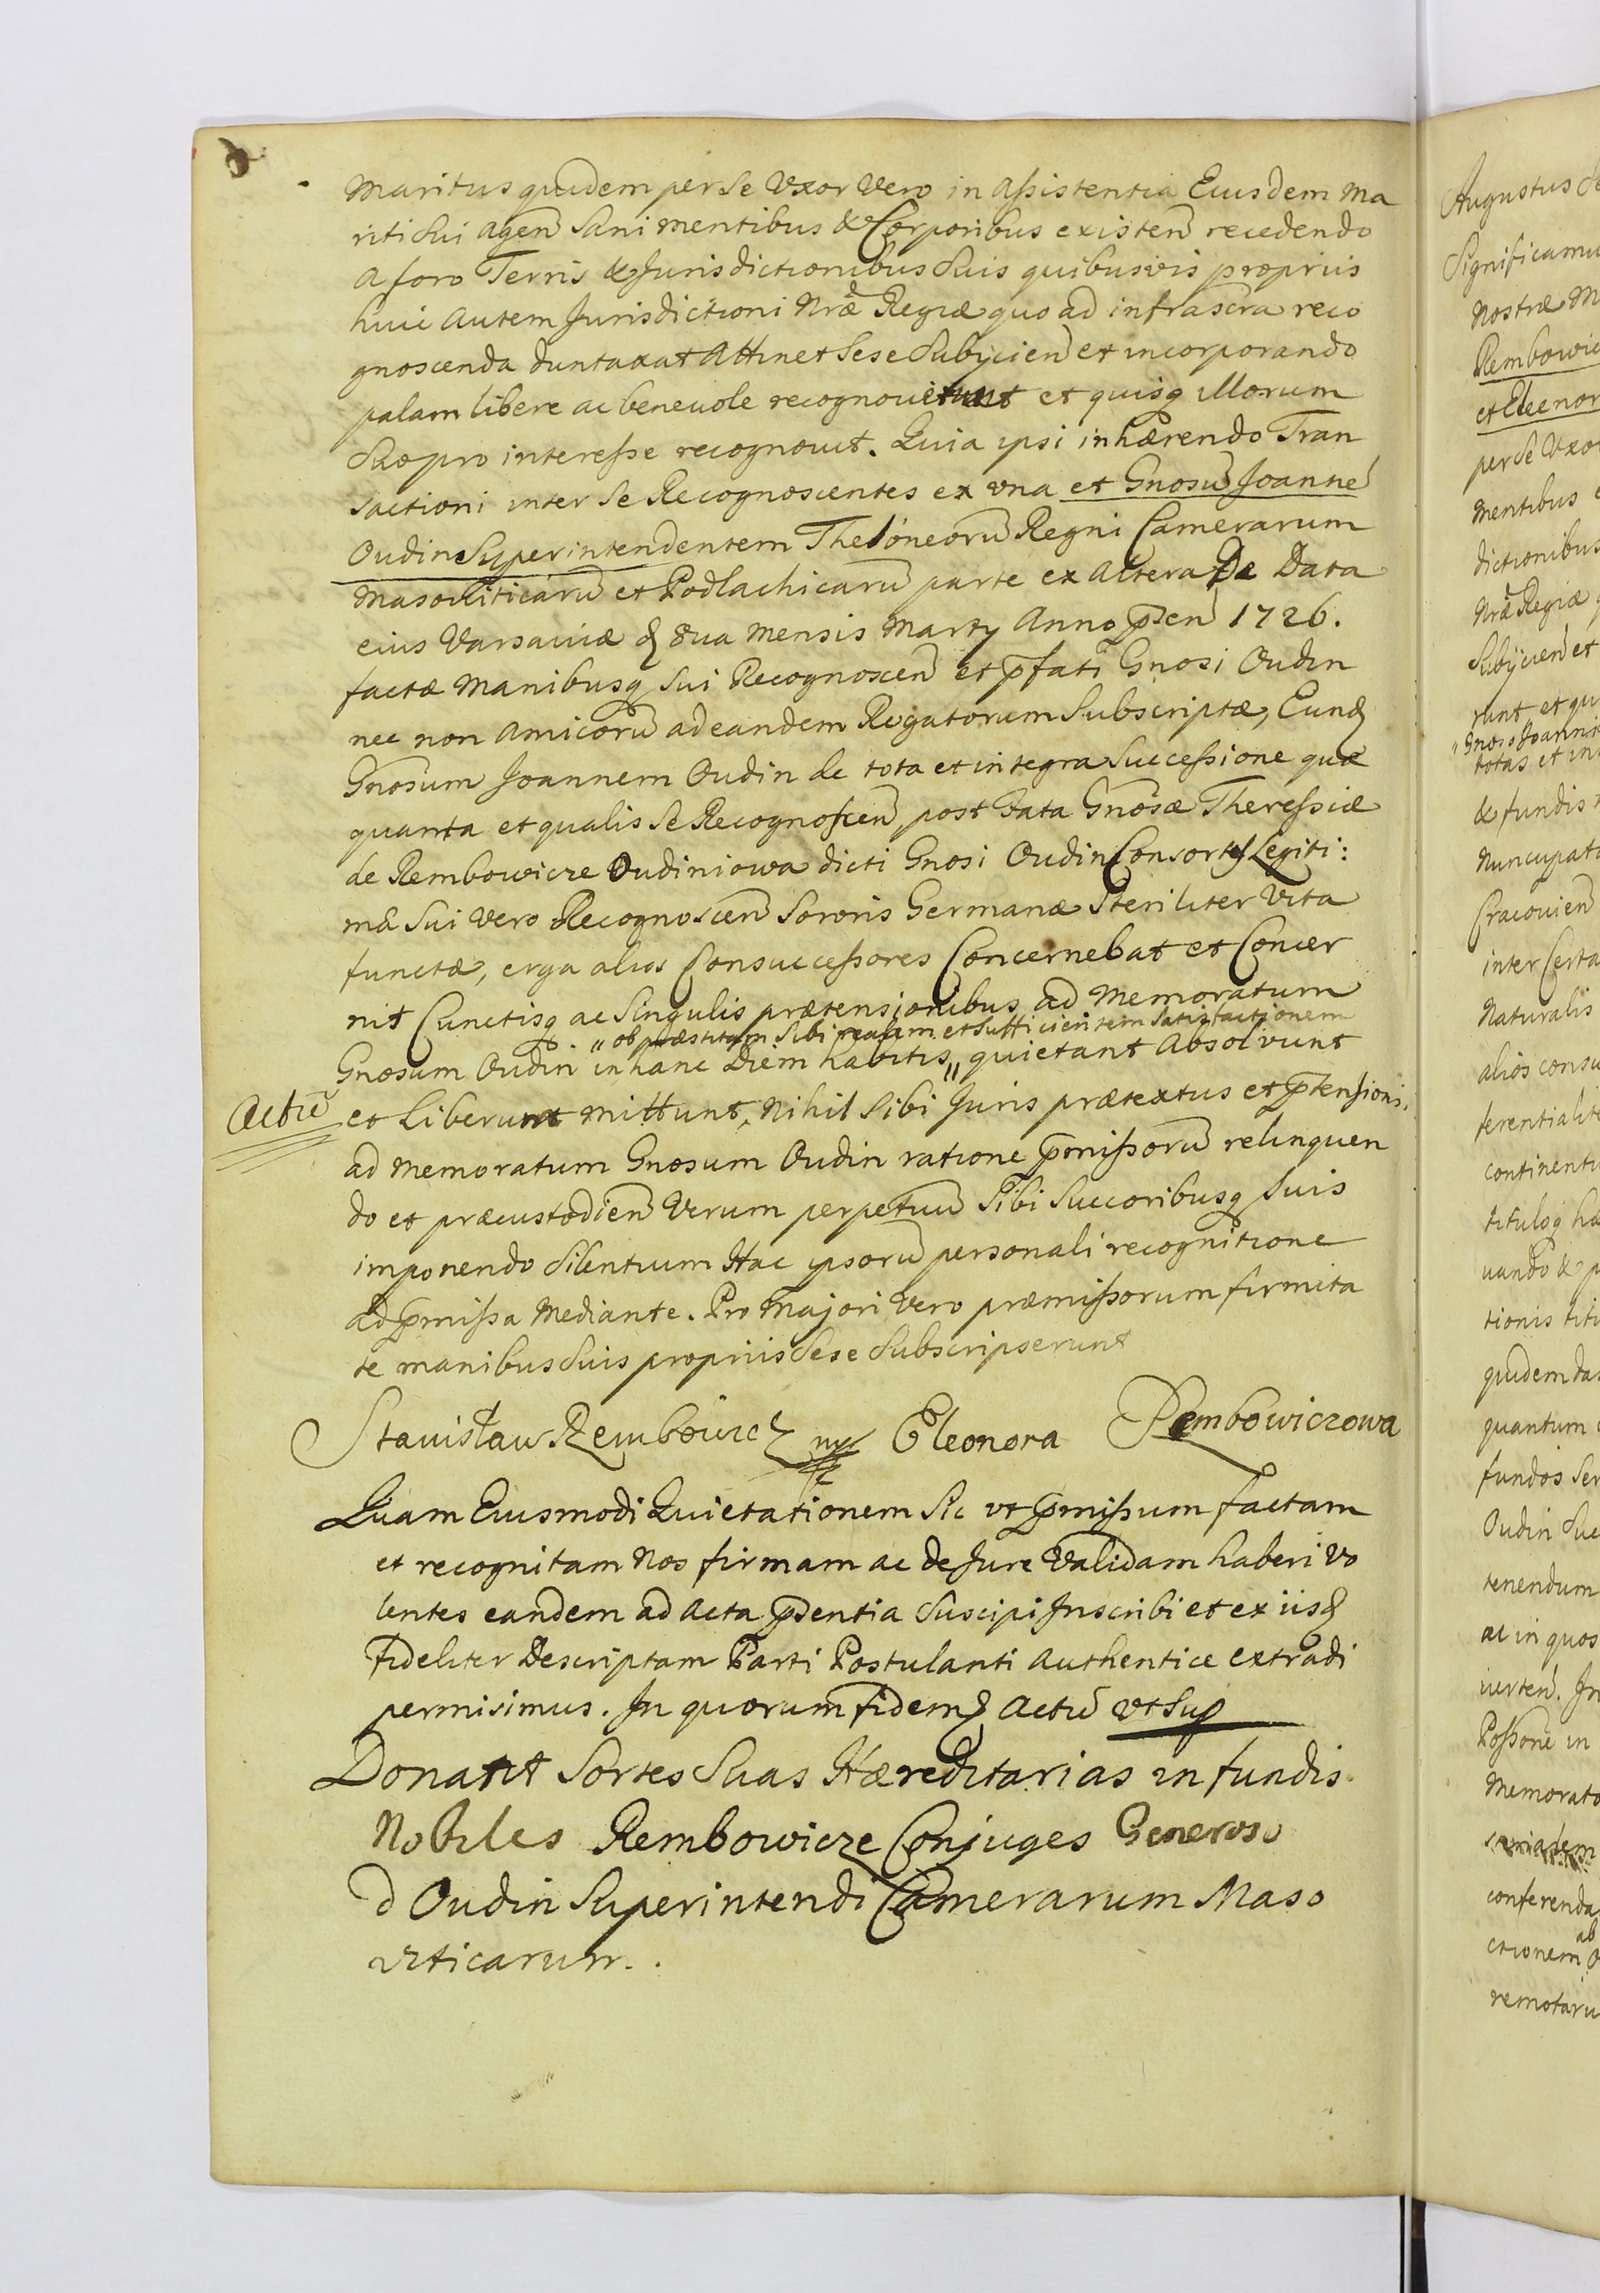 Maritus quidem per se Uxor Vero in Assistentia Eiusdem Ma
riti Sui Agen̄ Sani mentibus & Corporibus existen̄ recedendo
a foro Terris & Jurisdictionibus Suis quibusvis proprijs
huic autem Jurisdictioni Nr̄æ Regiæ quo ad infrascrā reco
gnoscenda duntaxat Attinet Sese Subijcien̄ et incorporando
palam libere ac beneuole recognouerunt et quisq illorum
Suo pro interesse recognouit. Quia ipsi inhærendo Tran
sactioni inter Se Recognoscentes ex una et Gnosū Joannē
Oudin Superintendentem Theloneorū Regni Camerarum
Masouiticarū et Podlachicarū parte ex Altera De Data
eius Varsauiæ d 8ua Mensis Martij Anno p̄sen̄ 1726.
factæ Manibusq Sui Recognoscen̄ et p̄fati Gnosi Oudin
nec non Amicorū ad eandem Rogatorum Subscriptæ, Eund
Gnosum Joannem Oudin de tota et integra Successione quæ
quanta et qualis Se Recognoscen̄ post Fata Gnosæ Theressiæ
de Rembowicze Oudiniowa dicti Gnosi Oudin Consortis Legiti:
mæ Sui Vero Recognoscen̄ Sororis Germanæ Steriliter Vita
functæ, erga alios Consuccessores Concernebat et Concer
nit Cunctisq ac Singulis prætensionibus ad Memoratum
„ ob præstitam Sibi realem et Sufficientem Satisfactionem
Gnosum Oudin in hanc Diem habitis „ quietant Absolvunt
Actū et Liberum mittunt, Nihil Sibi Juris prætextus et p̄tensionis
ad Memoratum Gnosum Oudin ratione p̄missorū relinquen
do et præcustodien̄ Verum perpetuū Sibi Succoribusq Suis
imponendo Silentium Hac ipsorū personali recognitione
ad p̄missa Mediante. Pro Majori Vero præmissorum firmita
te manibus Suis proprijs Sese Subscripserunt
Stanisław Rembowicz Eleonora Rembowiczowa
Quam Eiusmodi Quietationem Sic ut p̄missum factam
et recognitam Nos firmam ac de Jure Validam haberi vo
lentes eandem ad Acta p̄sentia Suscipi Inscribi et ex iisd
Fideliter Descriptam Parti Postulanti Authentice extradi
permisimus. In quorum fidem Actū ut Sup
Donant Sortes Suas Hæreditarias in fundis
Nobiles Rembowicze Conjuges Generoso
D Oudin Superintendi Camerarum Maso
viticarum.
Augustus
Significamu
Nostræ M
Rembowic
et Eleenor
per Se Uxo
mentibus
dictionibus
Nr̄æ Regiæ
Subijcien̄ et
runt et qu
„ Gnosi Joannis
totas et in
& fundis
Nuncupat
Cracouien̄
inter Certa
Naturalis
alios consu
ferentialite
continentu
titulog hæ
uando & p
tionis titu
quidem da
quantum
fundos Ser
Oudin Suc
tenendum
ac in quos
uerten̄. In
Possonē in
Memorato
conferenda
ab
ctionem
remotaru